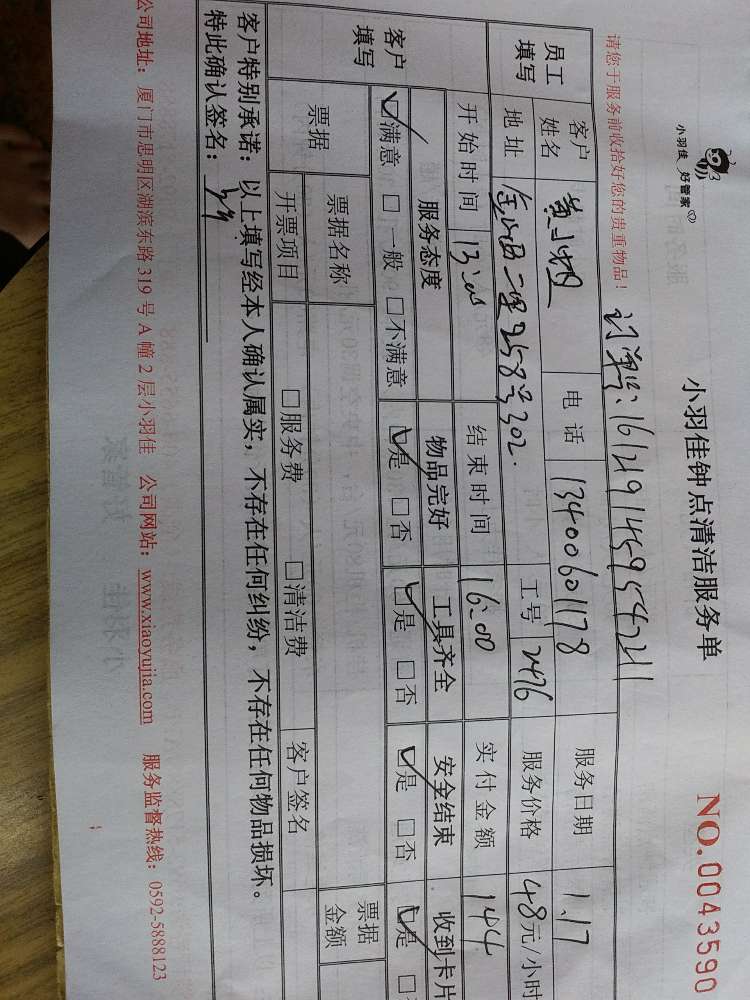 小羽佳 好管家
小羽佳钟点清洁服务单
NO.0043590
请您于服务前收拾好您的贵重物品!
订单号:161219145954211
员工填写 客户姓名 黄 电话 13400601178 服务日期 1.17
地址 金山西一里258号302. 工号 2476 服务价格 48元/小时
开始时间 13:00 结束时间 16:00 实付金额 144
客户填写 服务态度 物品完好 工具齐全 安全结束 收到卡片
☑满意 □一般 □不满意 ☑是 □否 ☑是 □否 ☑是 □否 ☑是 □
票据 票据名称 票据金额
开票项目 □服务费 □清洁费 客户签名
客户特别承诺:以上填写经本人确认属实,不存在任何纠纷,不存在任何物品损坏。
特此确认签名:
公司地址:厦门市思明区湖滨东路 319 号 A 幢 2 层小羽佳 公司网站:www.xiaoyujia.com 服务监督热线:0592-5888123